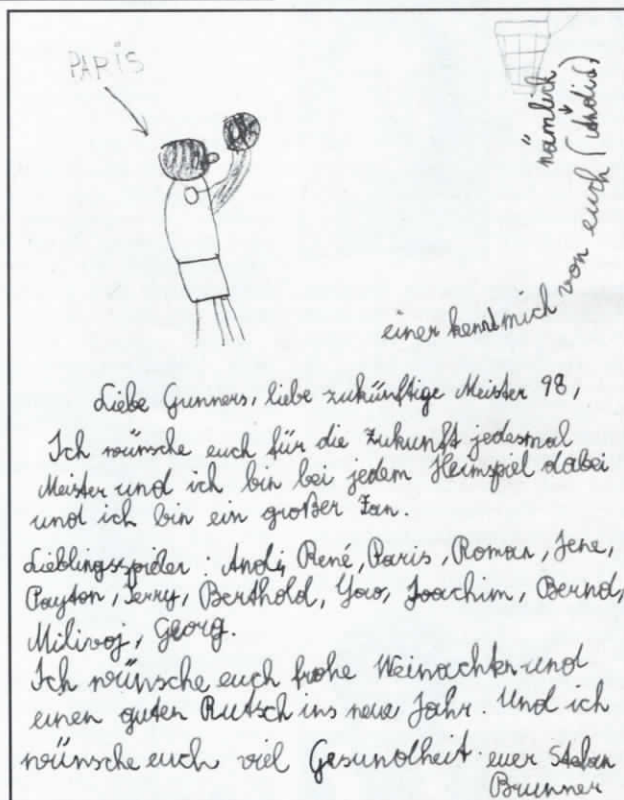 PARIS
einer kennt mich von euch
nämlich
Liebe Gunners, liebe zukünftige Meister 98,
Ich wünsche euch für die Zukunft jedesmal
Meister und ich bin bei jedem Heimspiel dabei
und ich bin ein großer Fan.
Lieblingsspieler: Andi, René, Paris, Roman, Jene,
Payton, Terry, Berthold, Joachim, Bernd,
Milivoj, Georg.
Ich wünsche euch frohe Weinachten und
einen guten Rutsch ins neue Jahr. Und ich
wünsche euch viel Gesundheit. euer Stefan
Brunner